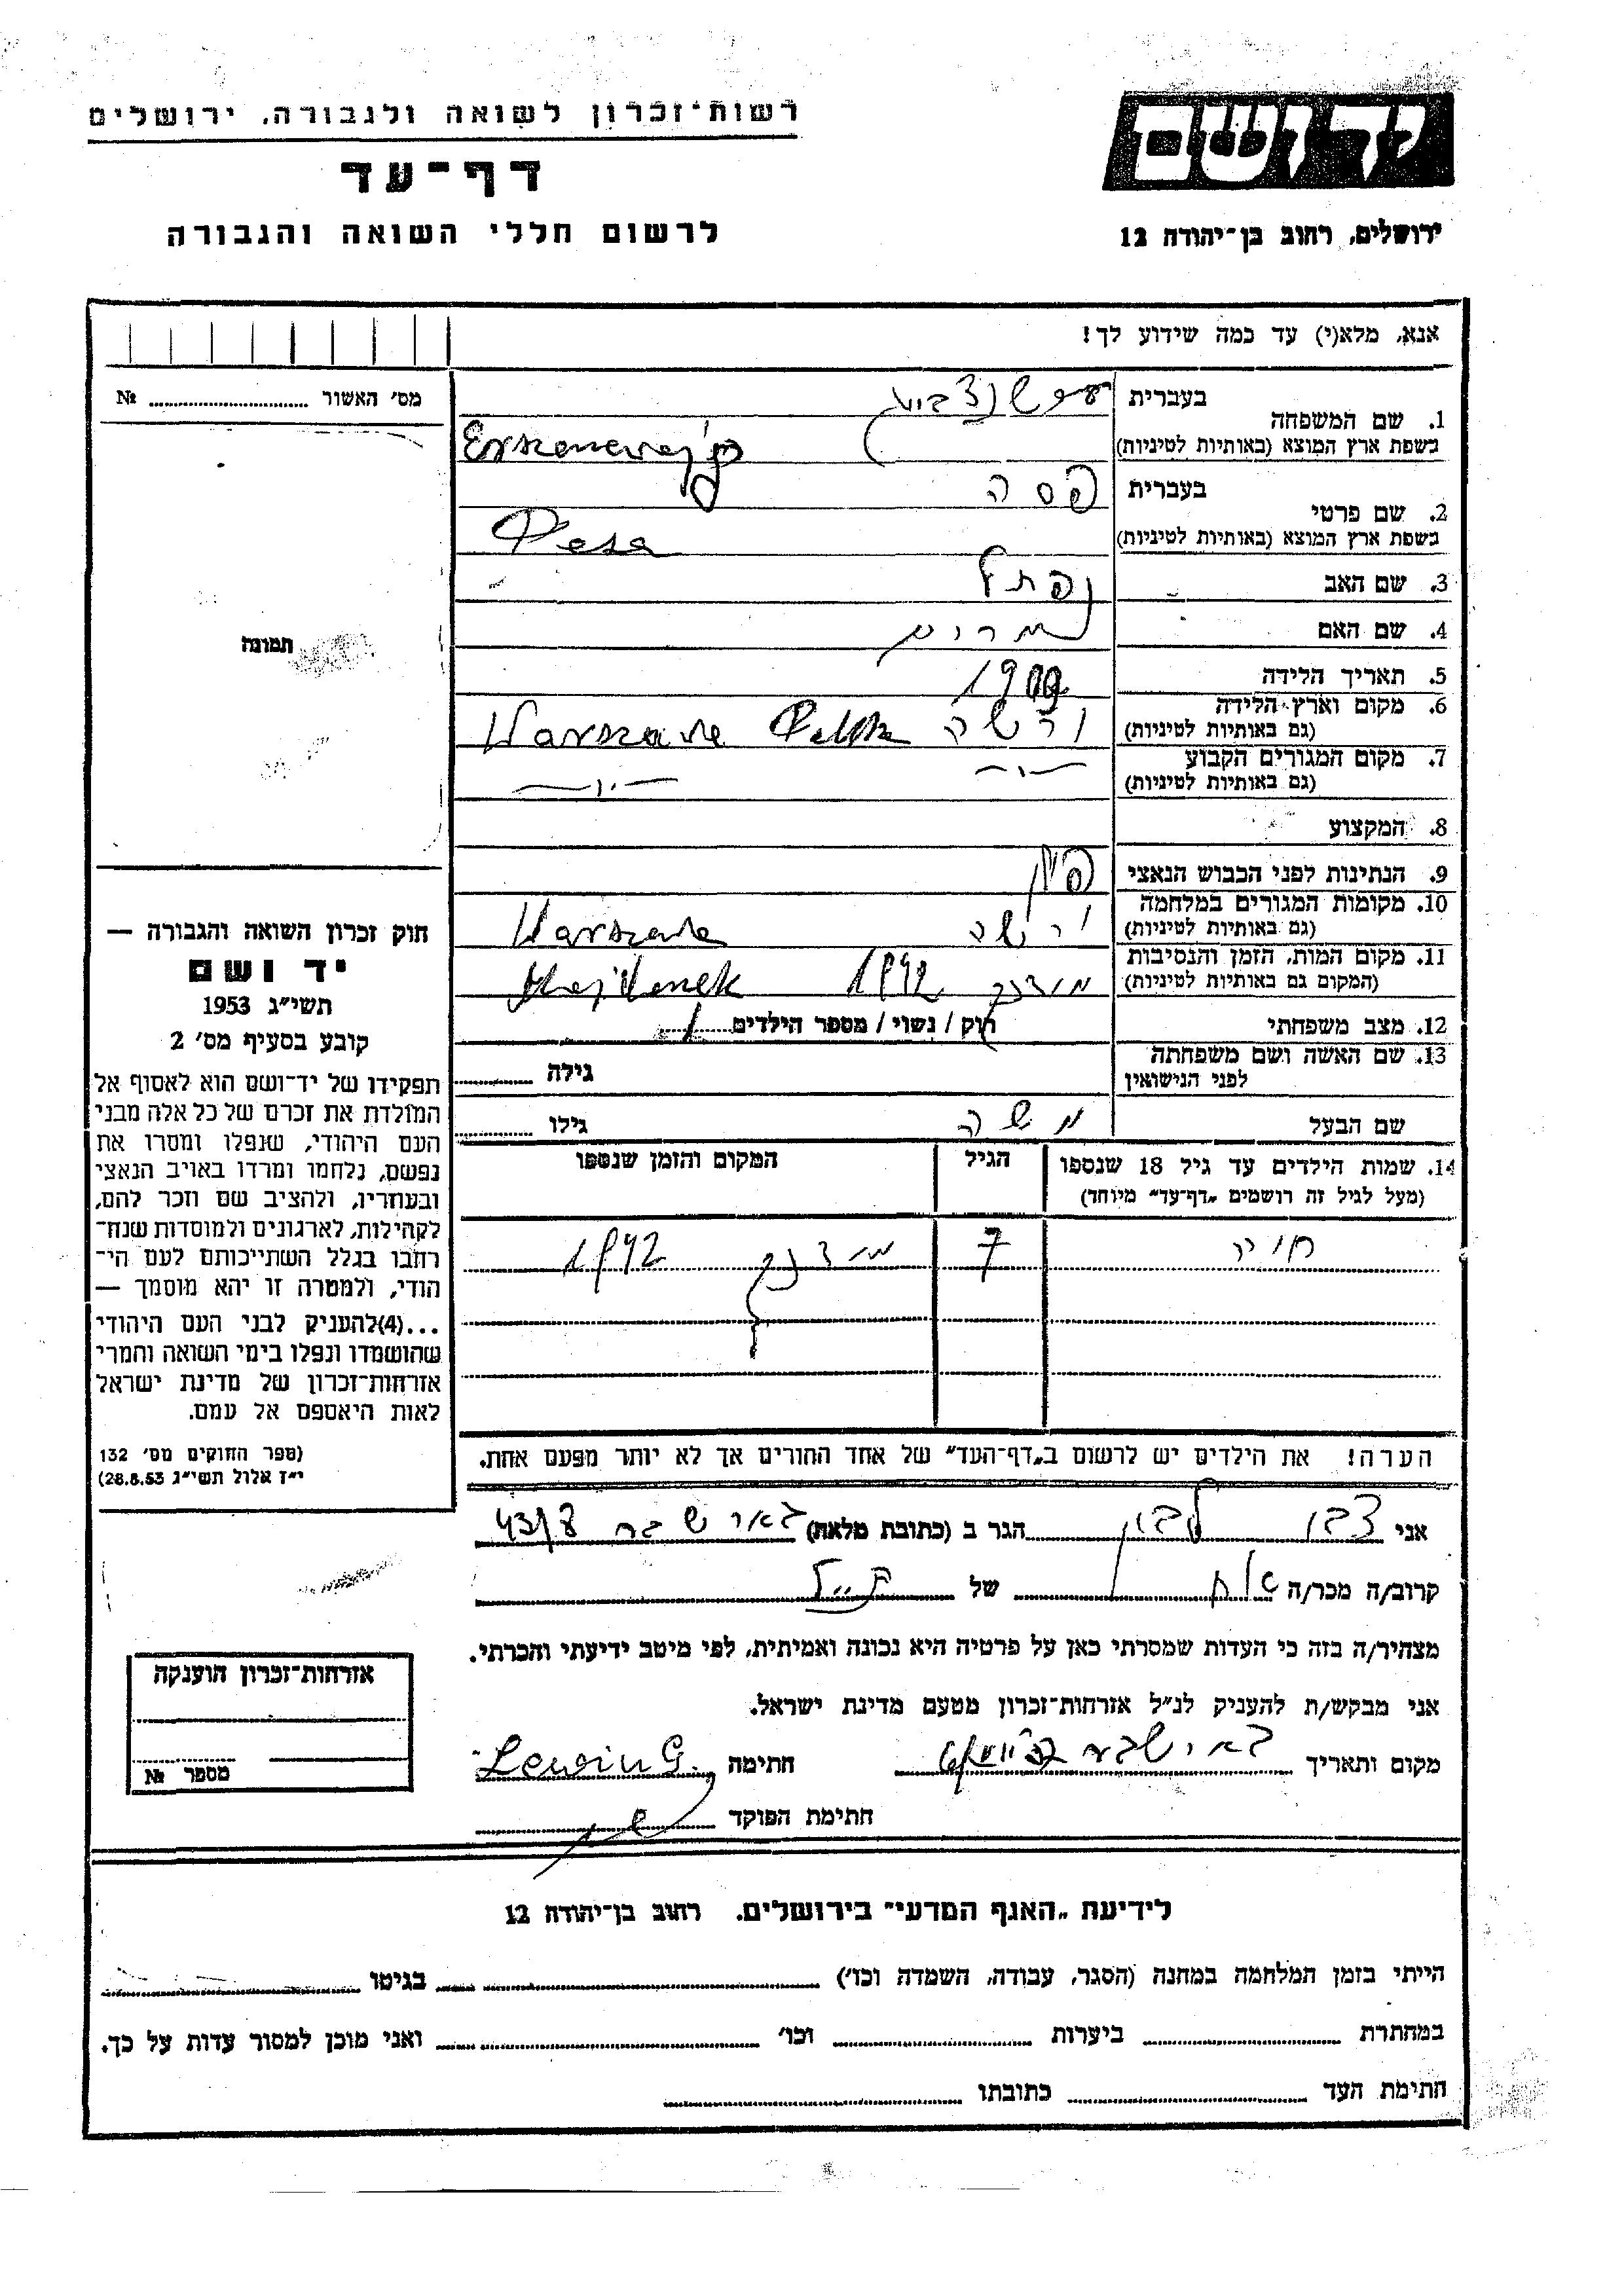 רשות־זכרון לשואה ולגבורה, ירושלים
דף־עד
לרשום חללי השואה והגבורה
יד ושם
ירושלים, רחוב בן־יהודה 12
אנא, מלא(י) עד כמה שידוע לך!
מס׳ האשור № 
1. שם המשפחה
בעברית
בשפת ארץ המוצא (באותיות לטיניות)
2. שם פרטי
בעברית פסה
בשפת ארץ המוצא (באותיות לטיניות) Pesa
3. שם האב
4. שם האם מרים
5. תאריך הלידה
6. מקום וארץ הלידה (גם באותיות לטיניות) ורשה Warszawa
7. מקום המגורים הקבוע (גם באותיות לטיניות) -״- -״-
8. המקצוע
9. הנתינות לפני הכבוש הנאצי
10. מקומות המגורים במלחמה (גם באותיות לטיניות) ורשה Warszawa
11. מקום המות, הזמן והנסיבות (המקום גם באותיות לטיניות) 1942 Majdanek
12. מצב משפחתי רוק / נשוי / מספר הילדים 1
13. שם האשה ושם משפחתה לפני הנישואין גילה
שם הבעל משה גילו
14. שמות הילדים עד גיל 18 שנספו (מעל לגיל זה רושמים „דף־עד״ מיוחד) הגיל המקום והזמן שנספו
חיה 7 1942
הערה! את הילדים יש לרשום ב„דף־העד״ של אחד ההורים אך לא יותר מפעם אחת.
תמונה
חוק זכרון השואה והגבורה —
יד ושם
תשי״ג 1953
קובע בסעיף מס׳ 2
תפקידו של יד־ושם הוא לאסוף אל
המולדת את זכרם של כל אלה מבני
העם היהודי, שנפלו ומסרו את
נפשם, נלחמו ומרדו באויב הנאצי
ובעוזריו, ולהציב שם וזכר להם,
לקהילות, לארגונים ולמוסדות שנח־
רבו בגלל השתייכותם לעם הי־
הודי, ולמטרה זו יהא מוסמך —
...(4)להעניק לבני העם היהודי
שהושמדו ונפלו בימי השואה והמרי
אזרחות־זכרון של מדינת ישראל
לאות היאספם אל עמם.
(ספר החוקים מס׳ 132
י״ז אלול תשי״ג 28.8.53)
אני הגר ב (כתובת מלאה) באר שבע
קרוב/ה מכר/ה של
מצהיר/ה בזה כי העדות שמסרתי כאן על פרטיה היא נכונה ואמיתית, לפי מיטב ידיעתי והכרתי.
אני מבקש/ת להעניק לנ״ל אזרחות־זכרון מטעם מדינת ישראל.
מקום ותאריך באר שבע חתימה Lewin G.
חתימת הפוקד
אזרחות־זכרון הוענקה
מספר №
לידיעת „האגף המדעי״ בירושלים, רחוב בן־יהודה 12
הייתי בזמן המלחמה במחנה (הסגר, עבודה, השמדה וכו׳) בגיטו
במחתרת ביערות וכו׳ ואני מוכן למסור עדות על כך.
חתימת העד כתובתו